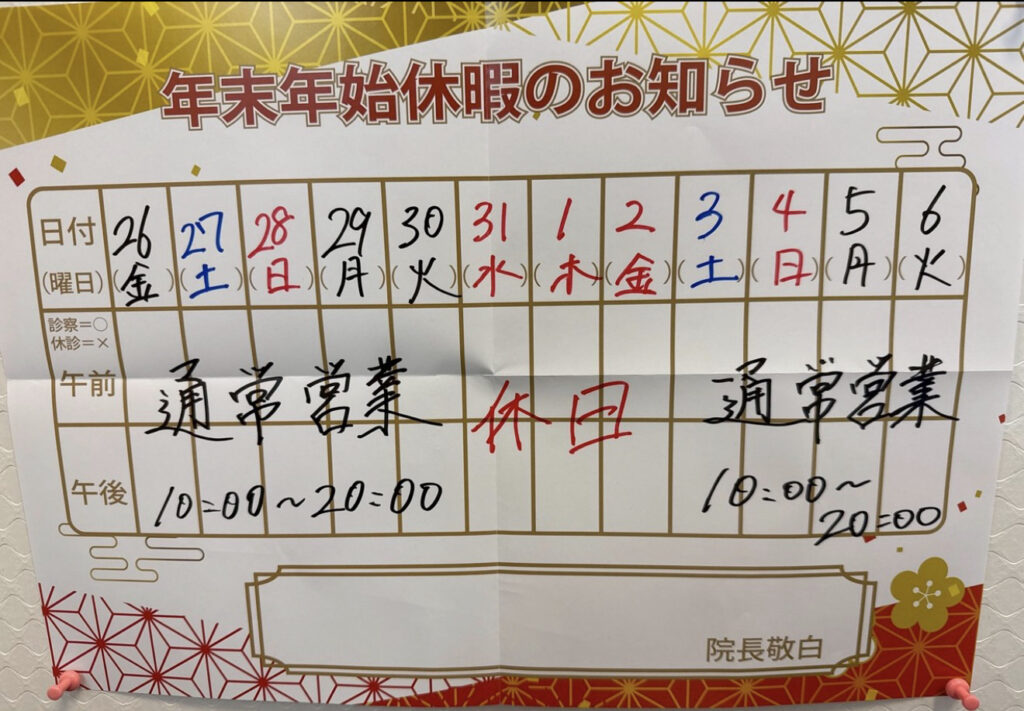 年末年始休暇のお知らせ
日付 26 27 28 29 30 31 1 2 3 4 5 6
(曜日) (金) (土) (日) (月) (火) (水) (木) (金) (土) (日) (月) (火)
診察=○
休診=×
午前 通常営業 休日 通常営業
午後 10:00~20:00 10:00~
20:00
院長敬白